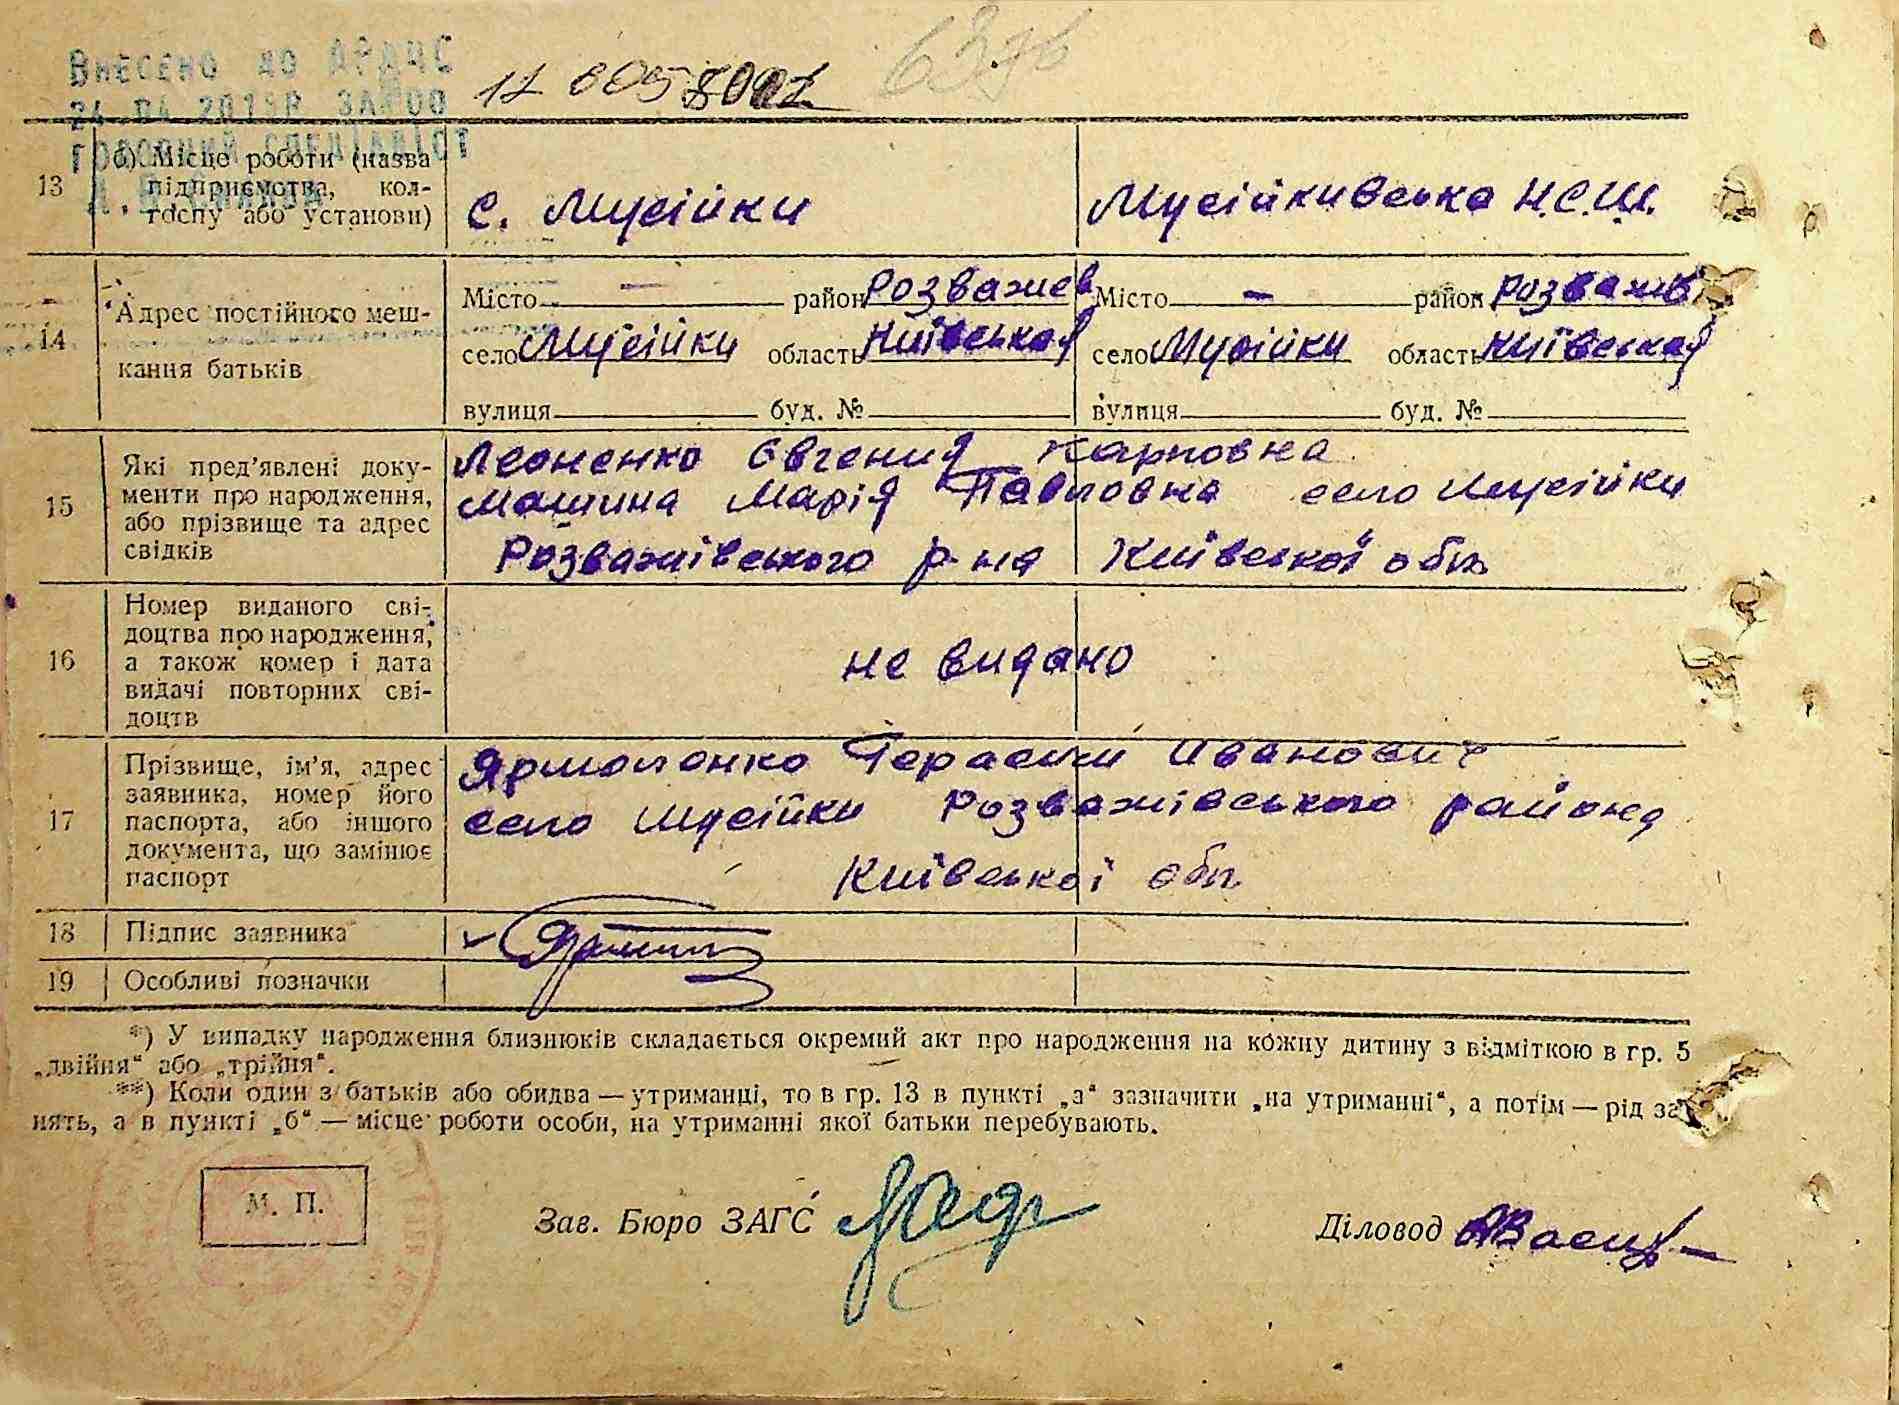 Внесено до ДРАЦС
24 04 2013р ЗАГ00
Головний спеціаліст
6376
13
б) Місце роботи (назва
підприємства, кол-
госпу або установи)
с. Мусійки
Мусійкивська Н.С.Ш.
14
Адрес постійного меш-
кання батьків
Місто — район Розважев
село Мусійки область Київськая
вулиця буд. №
Місто — район Розважив
село Мусійки область Київськая
вулиця буд. №
15
Які пред’явлені доку-
менти про народження,
або прізвище та адрес
свідків
Леоненко Євгения Карповна
Машина Марія Павловна село Мусійки
Розважівського р-на Київської обл
16
Номер виданого сві-
доцтва про народження,
а також номер і дата
видачі повторних сві-
доцтв
не видано
17
Прізвище, ім’я, адрес
заявника, номер його
паспорта, або іншого
документа, що замінює
паспорт
Ярмоленко Герасим Иванович
село Мусійки Розважівського района
Київської обл
18
Підпис заявника
19
Особливі позначки
*) У випадку народження близнюків складається окремий акт про народження на кожну дитину з відміткою в гр. 5
„двійня“ або „трійня“.
**) Коли один з батьків або обидва — утриманці, то в гр. 13 в пункті „а“ зазначити „на утриманні“, а потім — рід за-
нять, а в пункті „б“ — місце роботи особи, на утриманні якої батьки перебувають.
М. П.
Зав. Бюро ЗАГС
Діловод